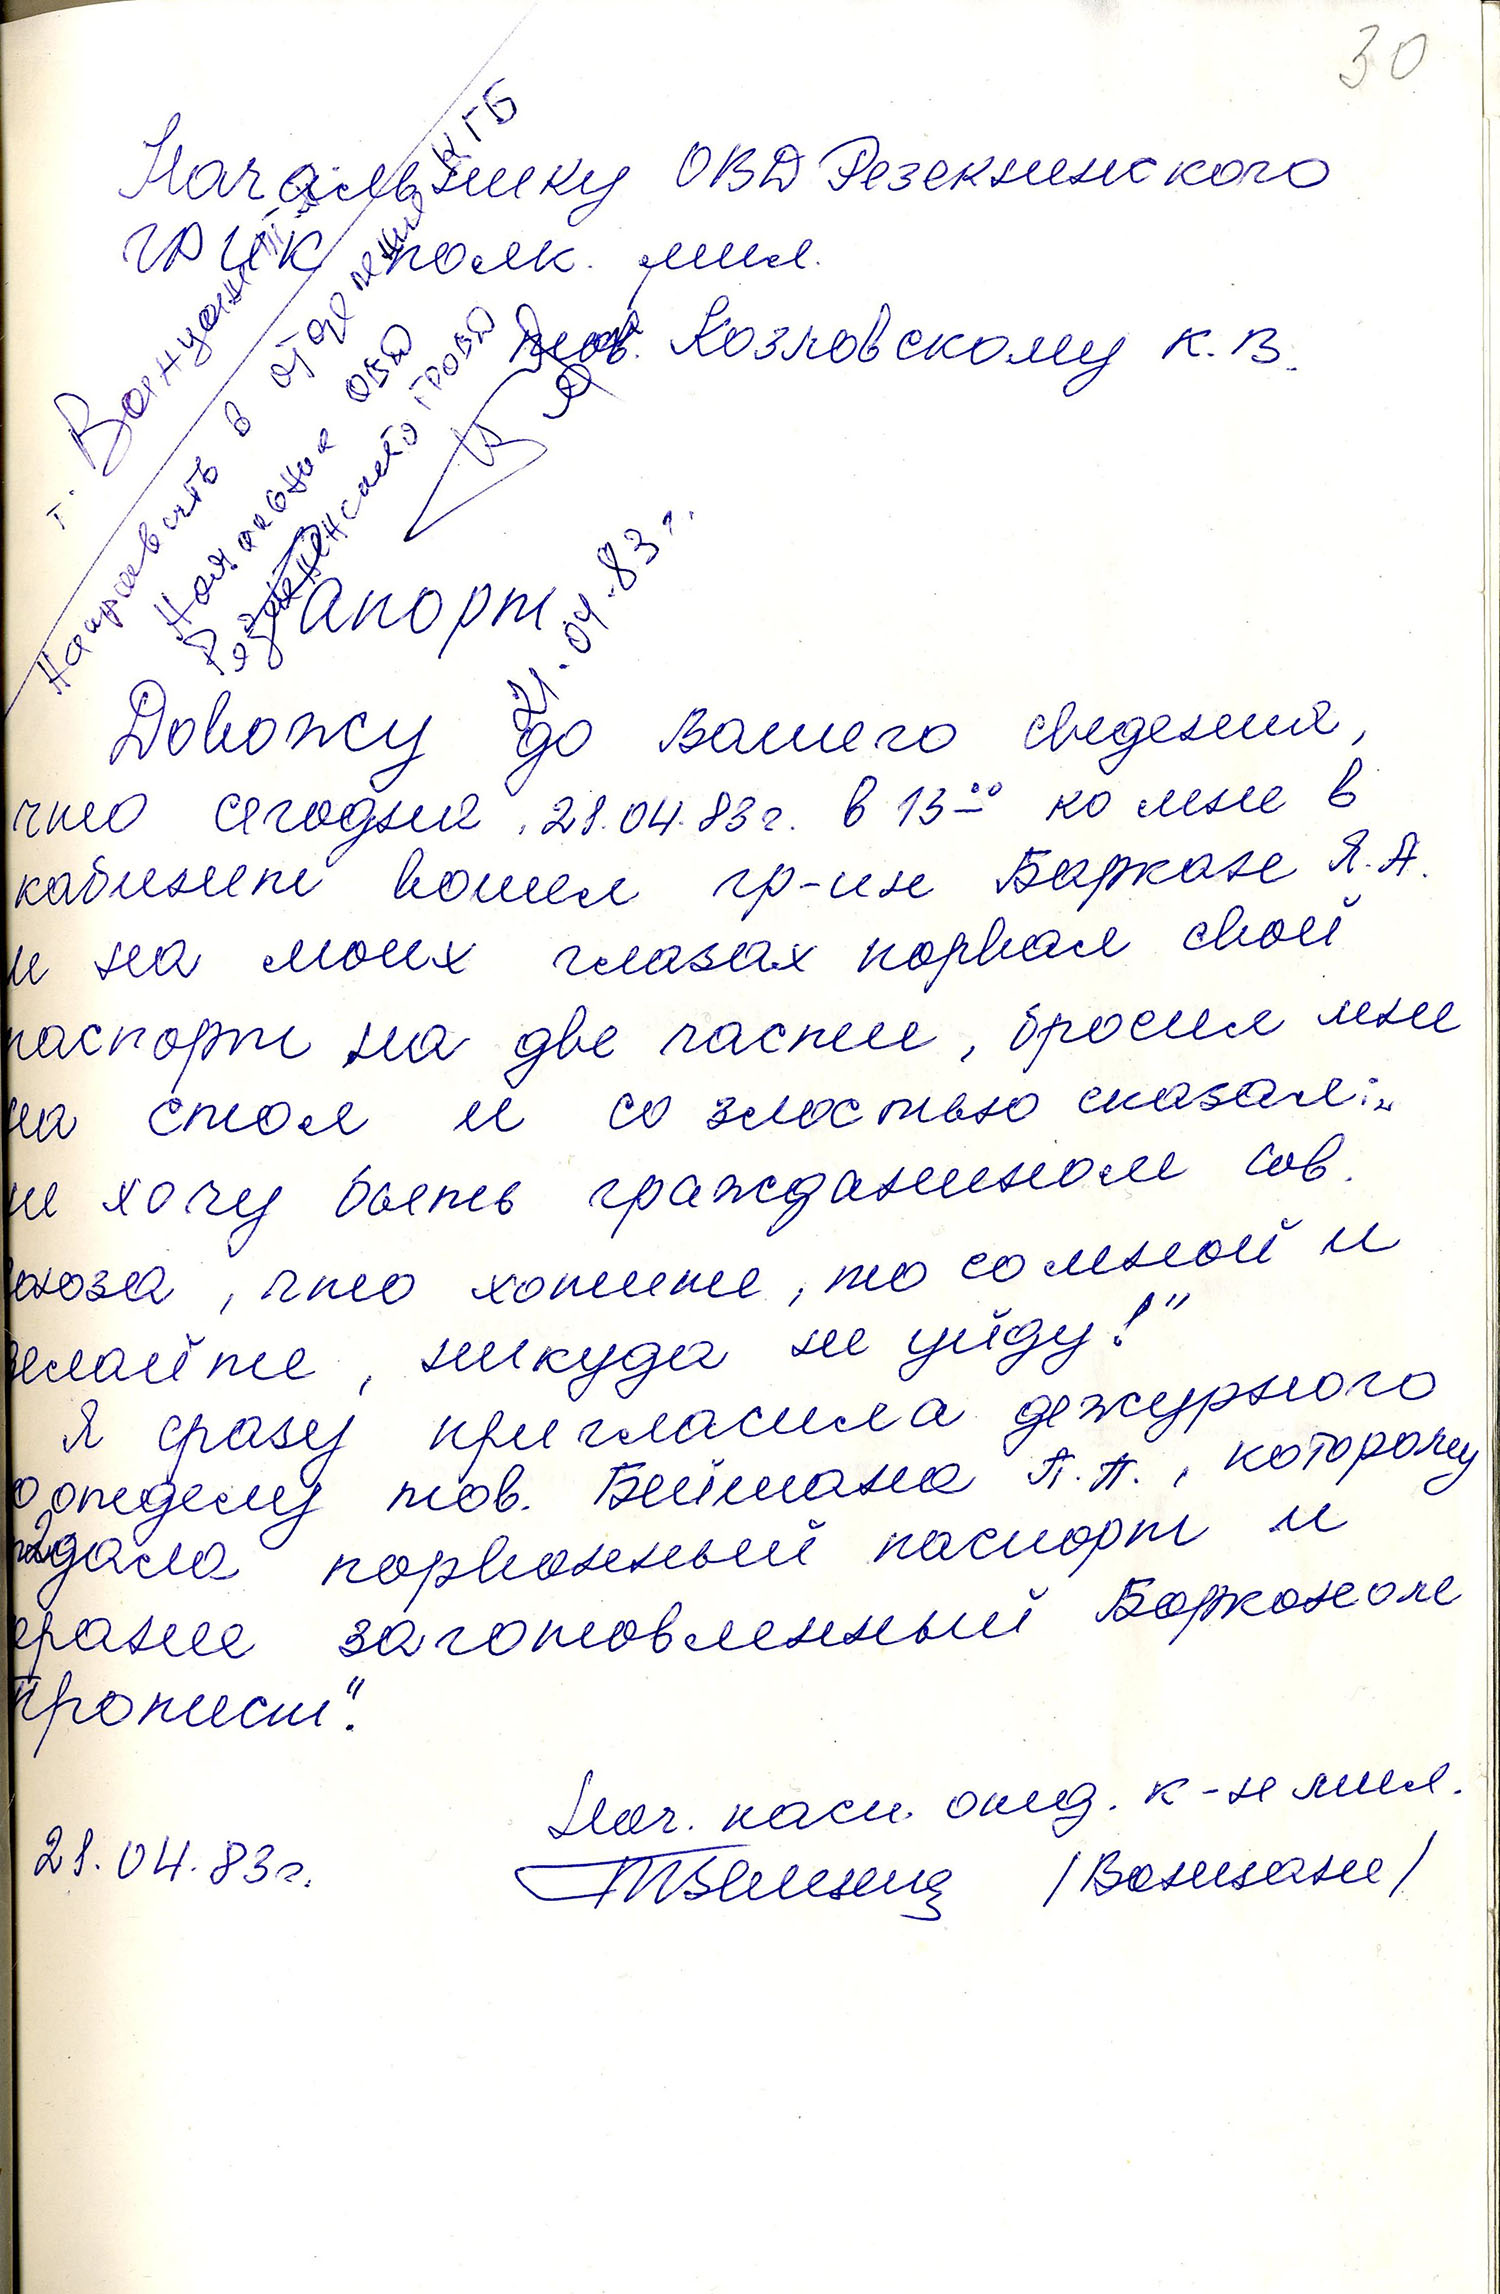 30
Начальнику ОВД Резекненского
ГРИК полк. мил.
тов. Козловскому К.В.
т.
Направить в отделение КГБ
Начальник ОВД
21.04.83 г.
Рапорт
Довожу до Вашего сведения,
что сегодня, 21.04.83 г. в 13⁰⁰ ко мне в
кабинет вошел гр-ин Барканс Я.А.
и на моих глазах порвал свой
паспорт на две части, бросил мне
на стол и со злостью сказал: „
не хочу быть гражданином Сов.
Союза, что хотите, то со мной и
делайте, никуда не уйду!"
Я сразу пригласила дежурного
по отделу тов. Беймана П.П., которому
отдала порванный паспорт и
ранее заготовленный Барканом
„Протест".
Нач. пасп. отд. к-н мил.
21.04.83 г.